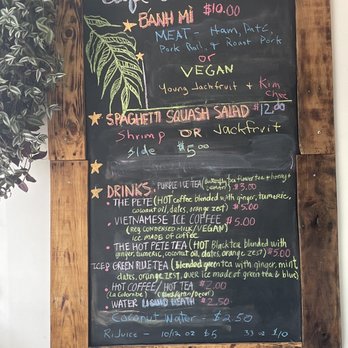 BANH MI $10.00
MEAT - Ham, Pate,
Pork Roll, & Roast Pork
or
VEGAN
Young Jackfruit & Kim
Chee
SPAGHETTI SQUASH SALAD $12.00
Shrimp OR Jackfruit
side $5.00
DRINKS: PURPLE ICE TEA (Butterfly pea flower tea + honey + $3.00
• THE PETE (HOT coffee blended with ginger, tumeric,
coconut oil, dates, orange zest) $5.00
• VIETNAMESE ICE COFFEE $5.00
(REG CONDENSED MILK/VEGAN)
ice made of coffee
• THE HOT PETE TEA (HOT Black tea blended with
ginger, tumeric, coconut oil, dates, orange zest) $5.00
ICED GREEN BLUE TEA (blended green tea with ginger, mint,
dates, orange zest, over ice made of green tea & blue)
• HOT COFFEE / HOT TEA $2.00
(La Colombe)
WATER LIQUID DEATH $2.50
Coconut Water - $2.50
10/12 oz $5 32 oz $10